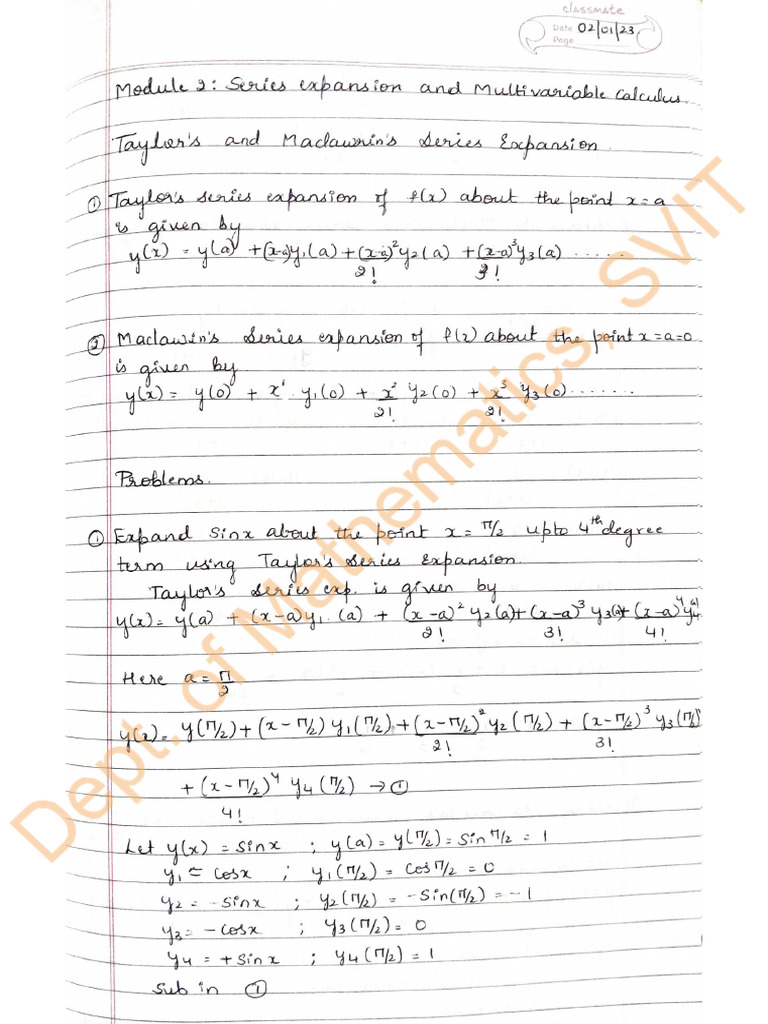 classmate
Date 02/01/23
Page
Module 2: Series expansion and Multivariable Calculus.
Taylor's and Maclaurin's Series Expansion.
① Taylor's series expansion of f(x) about the point x=a
is given by
y(x) = y(a) + (x-a)y₁(a) + (x-a)²/2! y₂(a) + (x-a)³/3! y₃(a) ......
② Maclaurin's Series expansion of f(x) about the point x=a=0
is given by
y(x) = y(0) + x¹. y₁(0) + x²/2! y₂(0) + x³/2! y₃(0).......
Problems.
① Expand Sinx about the point x= π/2 upto 4th degree
term using Taylor's Series Expansion.
Taylor's Series exp. is given by
y(x)= y(a) + (x-a)y₁ (a) + (x-a)²/2! y₂(a)+ (x-a)³/3! y₃(a)+ (x-a)⁴/4! y₄(a)
Here a= π/2
y(x)= y(π/2)+(x-π/2) y₁(π/2)+(x-π/2)²/2! y₂(π/2) + (x-π/2)³/3! y₃(π/2)
+ (x-π/2)⁴/4! y₄(π/2) → ①
Let y(x) = Sinx ; y(a)= y(π/2)= Sin π/2 = 1
y₁ = Cosx ; y₁(π/2) = Cos π/2 = 0
y₂ = -Sinx ; y₂(π/2) = -Sin(π/2)= -1
y₃= -Cosx ; y₃(π/2)= 0
y₄ = +Sinx ; y₄(π/2) = 1
Sub in ①
Dept. of Mathematics, SVIT